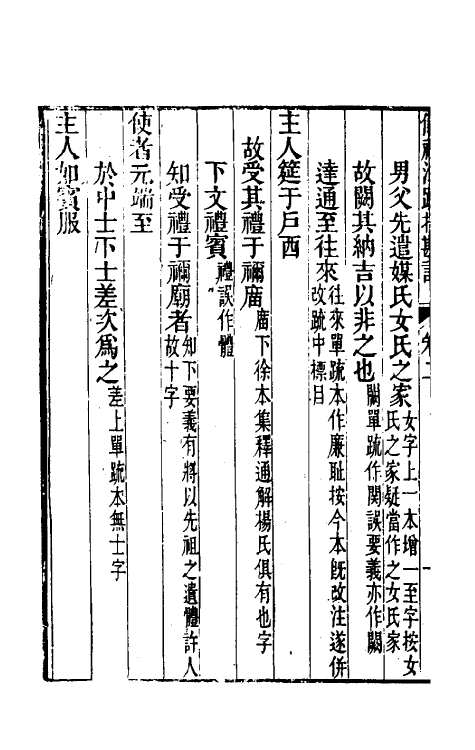 男父先遣媒氏女氏之家女字上一本增一至字按女氏之家疑當作之女氏家
故闕其納吉以非之也闕單疏作関誤要義亦作闕
達通至往來往來單疏本作廉耻按今本旣改注遂併改疏中標目
主人筵于戶西
故受其禮于禰廣廣下徐本集釋通解楊氏俱有也字
下文禮賓禮誤作體
知受禮于禰廟者知下要義有將以先祖之遺體許人故十字
使者元端至
於中士下士差次爲之差上單疏本無士字
主人如賓服